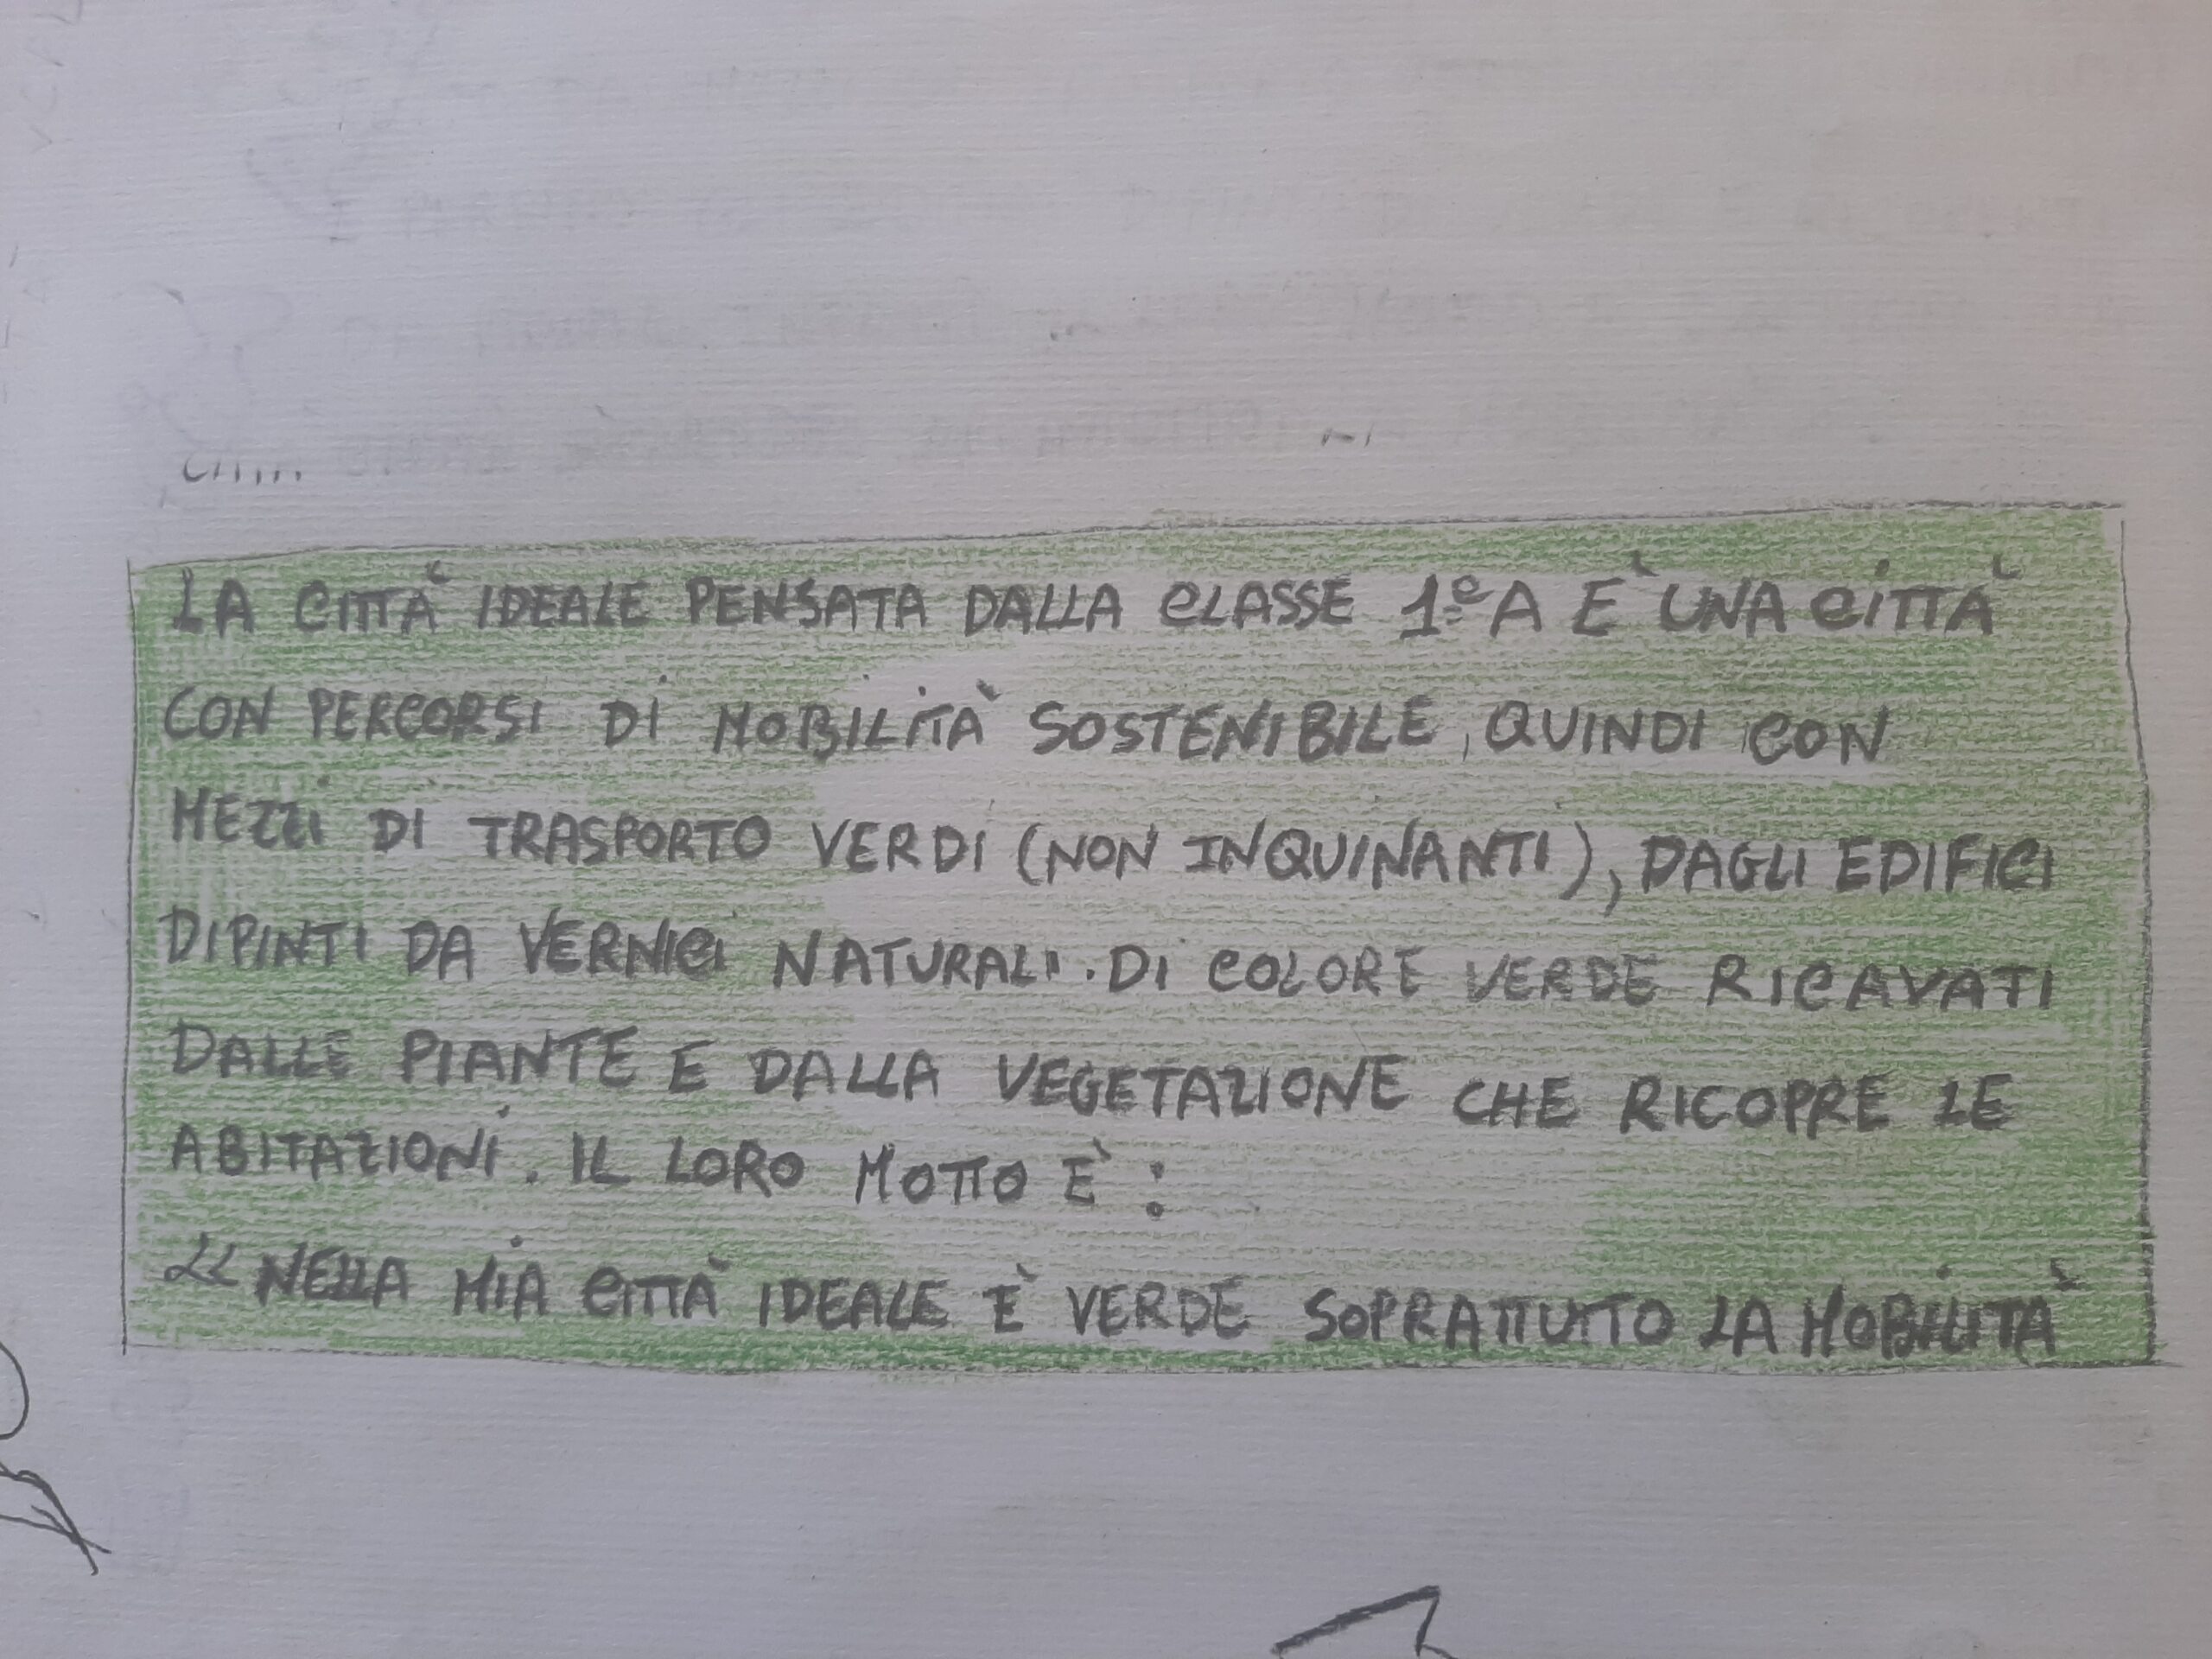 LA CITTÀ IDEALE PENSATA DALLA CLASSE 1ºA È UNA CITTÀ
CON PERCORSI DI MOBILITÀ SOSTENIBILE, QUINDI CON
MEZZI DI TRASPORTO VERDI (NON INQUINANTI), DAGLI EDIFICI
DIPINTI DA VERNICI NATURALI. DI COLORE VERDE RICAVATI
DALLE PIANTE E DALLA VEGETAZIONE CHE RICOPRE LE
ABITAZIONI. IL LORO MOTTO È:
<< NELLA MIA CITTÀ IDEALE È VERDE SOPRATTUTTO LA MOBILITÀ